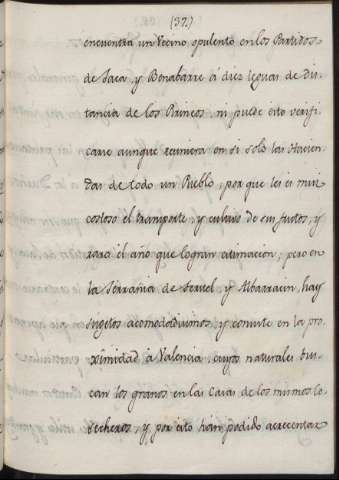 (32)
encuentra un Vecino opulento en los Partidos
de Jaca y Benabarre á diez leguas de dis-
tancia de los Pirineos, ni puede esto verifi-
carse aunque reuniera en si solo las Hacien-
das de todo un Pueblo, por que les es mui
costoso el transporte, y cultivo de sus frutos, y
raro el año que logran estimacion; pero en
la Serrania de Teruel y Albarracin, hay
sugetos acomodadisimos, y consiste en la pro-
ximidad à Valencia, cuyos naturales bus-
can los granos en las Casas de los mismos Co-
secheros, y por esto han podido acrecentar